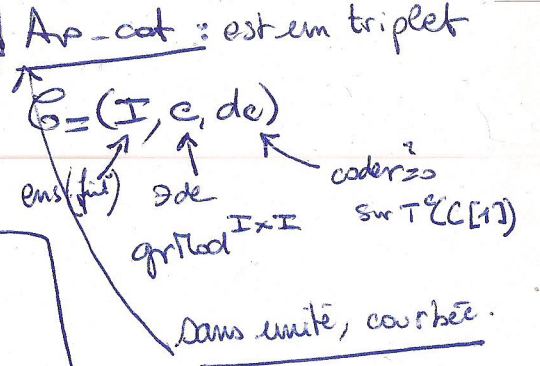 A∞-cat : est un triplet
C = (I, C, dC)
ens (fini) de
grMod I×I
coder
sur Tᶜ(C[1])
sans unité, courbée.